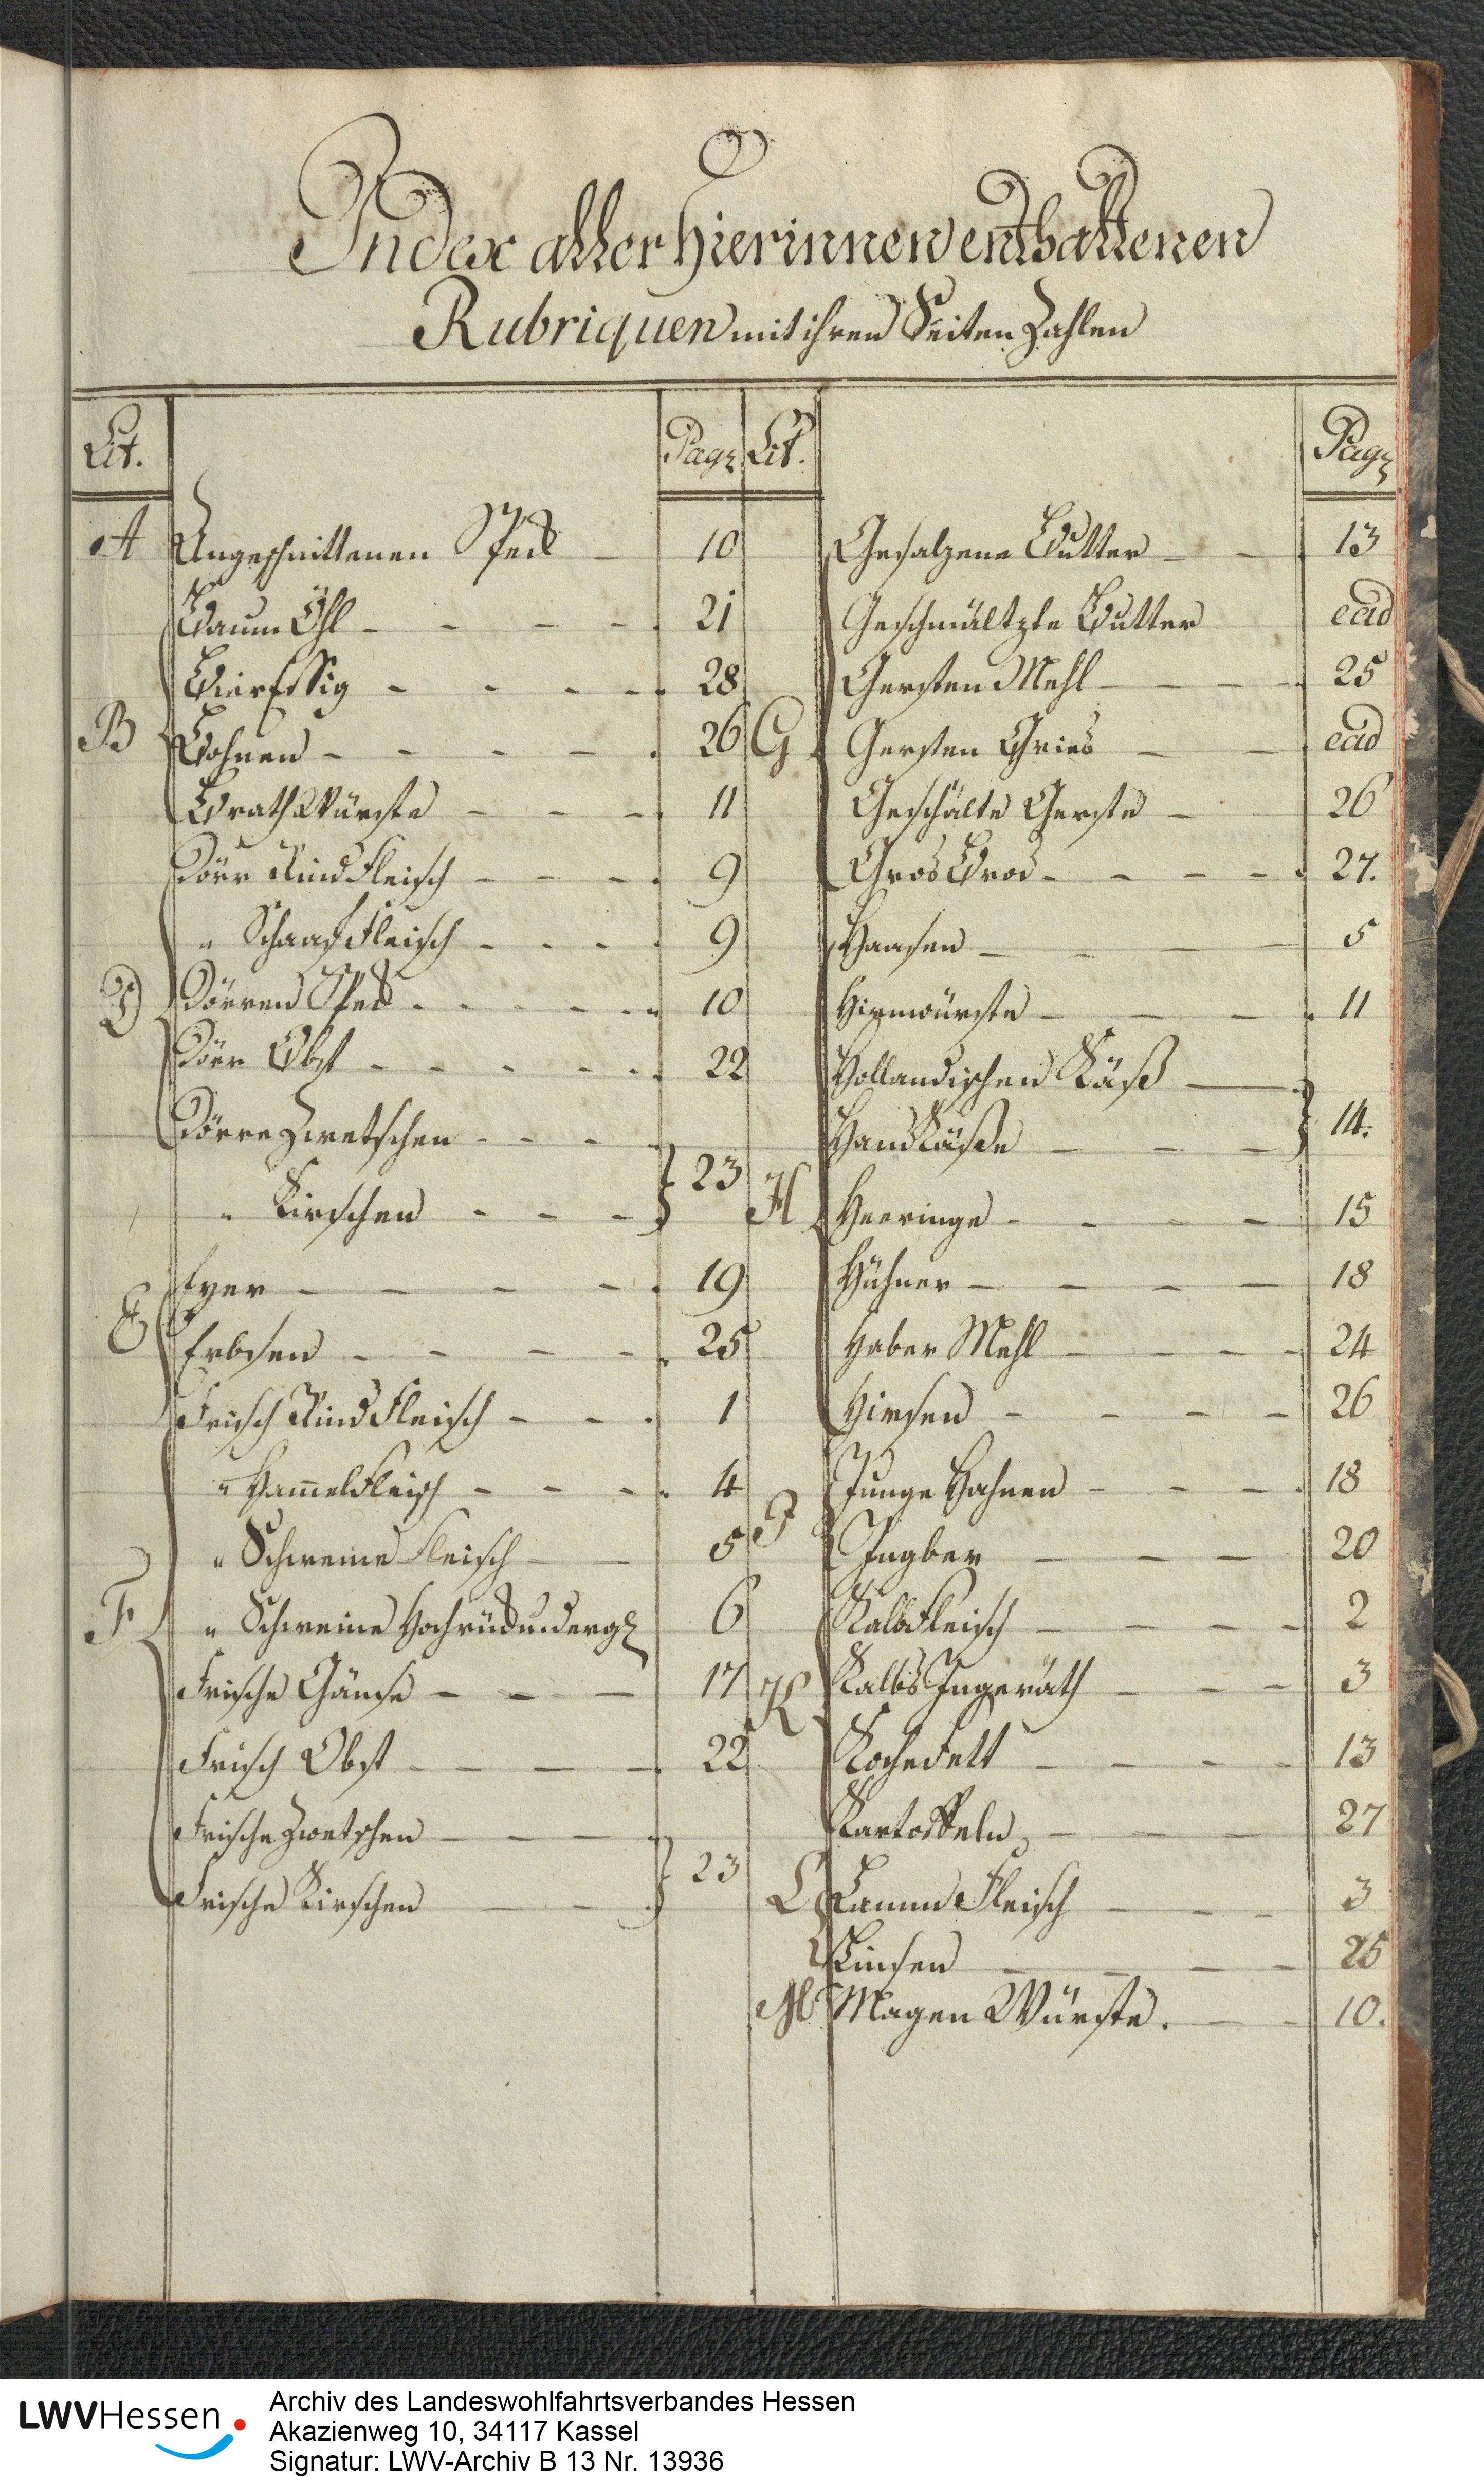 Index aller hierinnen enthaltenen
Rubriquen mit ihren Seiten Zahlen
Lit.
Pag.
A
Angeschnittenen Speck - 10
Baum Öhl - - - - - 21
Bieressig - - - - - 28
B
Bohnen - - - - - 26
Brath Würste - - - - 11
Dörr Rind Fleisch - - - - 9
" Schaaf Fleisch - - - - 9
D
Dörren Speck - - - - - 10
Dörr Obst - - - - - 22
Dörre Zwetschen - - - -
23
" Kirschen - - - -
Eyer - - - - - 19
E
Erbsen - - - - - 25
Frisch Rind Fleisch - - - 1
" Ham̄elfleisch - - - - 4
" Schweine Fleisch - - 5
F
" Schweine Hochrück u. derg. 6
Frische Gänse - - - 17
Frisch Obst - - - - 22
Frische Zwetschen - - - -
23
Frische Kirschen - - -
Lit.
Pag.
Gesalzene Butter - - 13
Geschmältzte Butter ead
Gersten Mehl - - - - 25
G
Gersten Gries - - ead
Geschälte Gerste - 26
Gros Brod - - - - - 27.
Haasen - - - - 5
Hirnwürste - - - 11
Holländischen Käß -
14.
Hand Käße - - -
H
Heeringe - - - - 15
Hühner - - - - - 18
Haber Mehl - - - - 24
Hirsen - - - - - 26
Junge Hahnen - - - - 18
J
Ingber - - - 20
Kalbfleisch - - - - 2
K
Kalbs Ingeräth - - - 3
Kochfett - - - - 13
Kartoffeln - - - 27
L
Lamm Fleisch - - - 3
Linsen - - - - 25
M
Magen Würste. - - 10.
LWVHessen
Archiv des Landeswohlfahrtsverbandes Hessen
Akazienweg 10, 34117 Kassel
Signatur: LWV-Archiv B 13 Nr. 13936